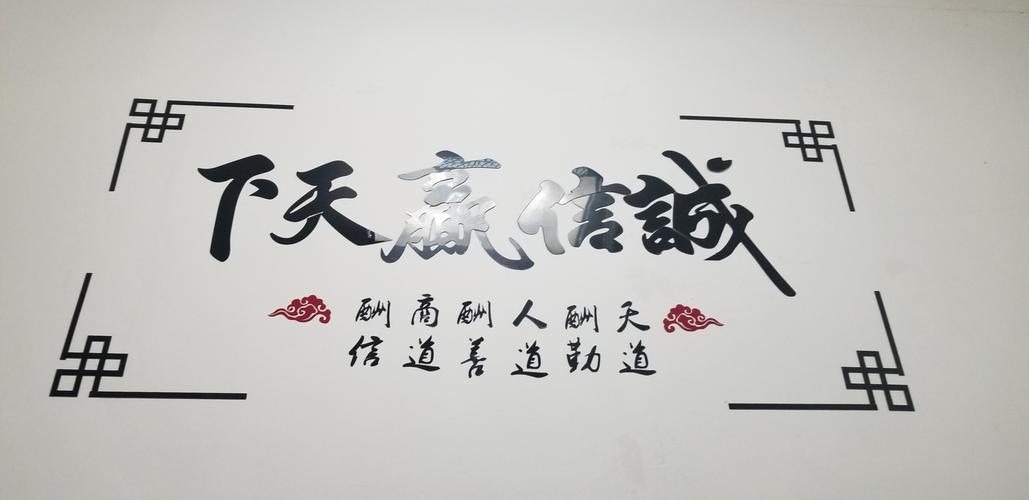 誠信赢天下
天道
酬勤
人道
酬善
商道
酬信